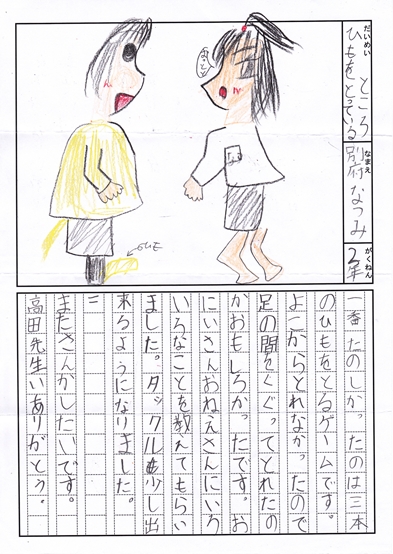 だいめい
ひもをとっている
ところ
なまえ
別府なつみ
がくねん
2年
一番たのしかったのは三本
のひもをとるゲームです。
よこからとれなかったので
足の間をくぐってとれたの
がおもしろかったです。お
にいさんおねえさんにいろ
いろなことを教えてもらい
ました。タックルも少し出
来るようになりました。
またさんかしたいです。
高田先生いありがとう。